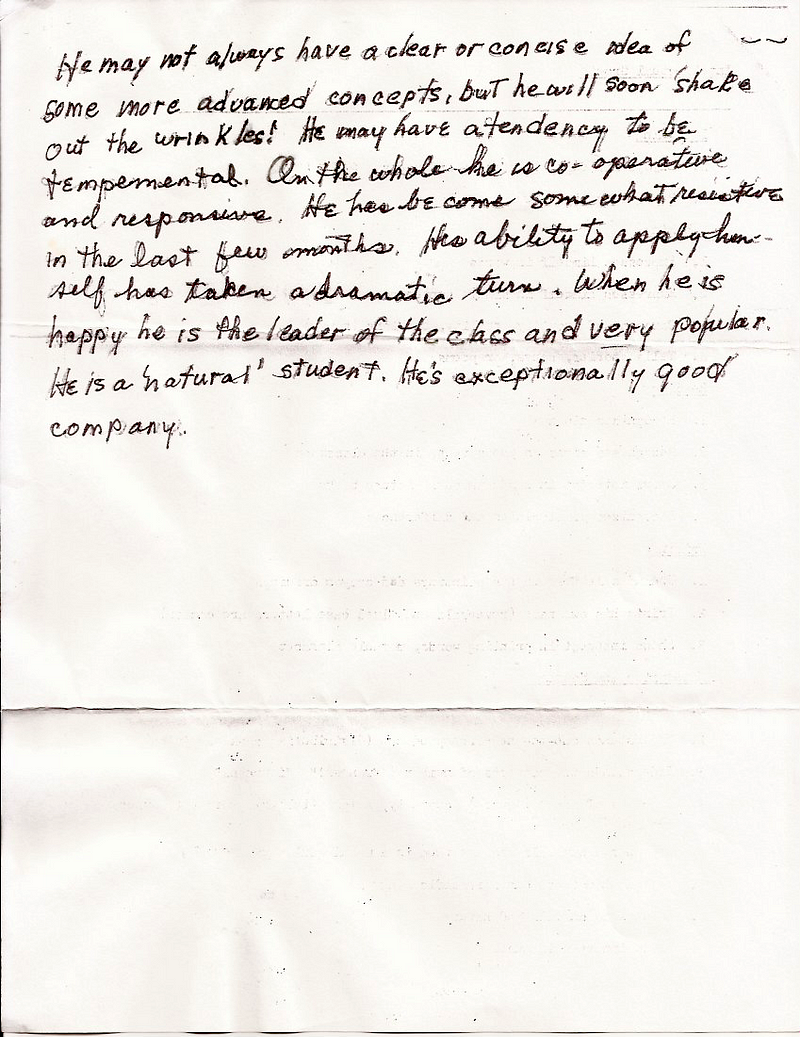 He may not always have a clear or concise idea of
some more advanced concepts, but he will soon 'shake
out the wrinkles! He may have a tendency to be
tempemental. On the whole he is co-operative
and responsive. He has become somewhat resistive
in the last few months. His ability to apply him-
self has taken a dramatic turn. When he is
happy he is the leader of the class and very popular.
He is a 'natural' student. He's exceptionally good
company.